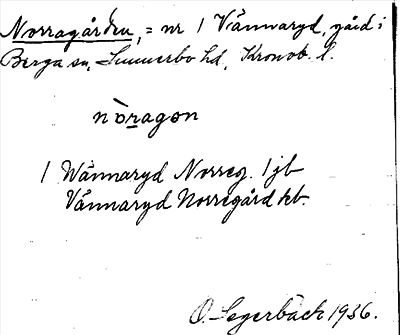 Norragården, = nr 1 Vännaryd, gård i
Berga sn, Sunnerbo hd, Kronob. l.
nòragơn
1 Wännaryd Norreg. 1 jb
Vännaryd Norregård kb.
O. Segerbäck 1936.